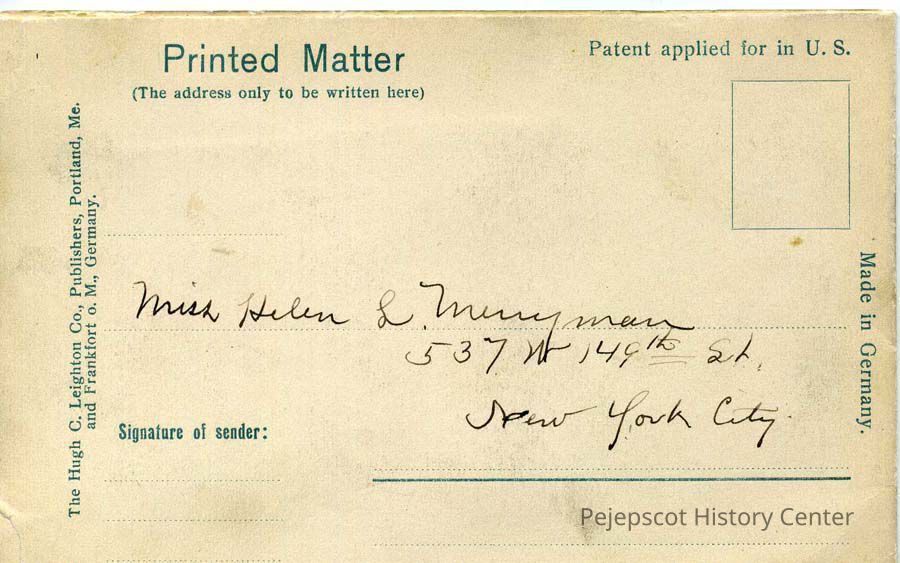 Printed Matter
(The address only to be written here)
Patent applied for in U. S.
The Hugh C. Leighton Co., Publishers, Portland, Me.
and Frankfort o. M., Germany.
Miss Helen L. Merryman
537 W 149th St.
New York City.
Made in Germany.
Signature of sender:
Pejepscot History Center